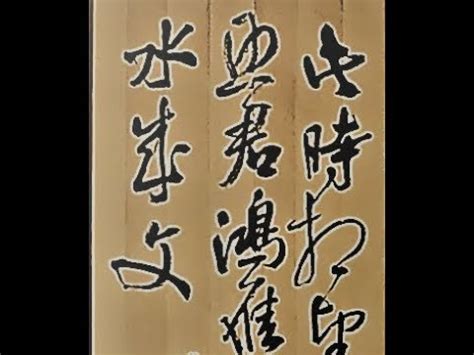 此時相望
照君鴻雁
水成文